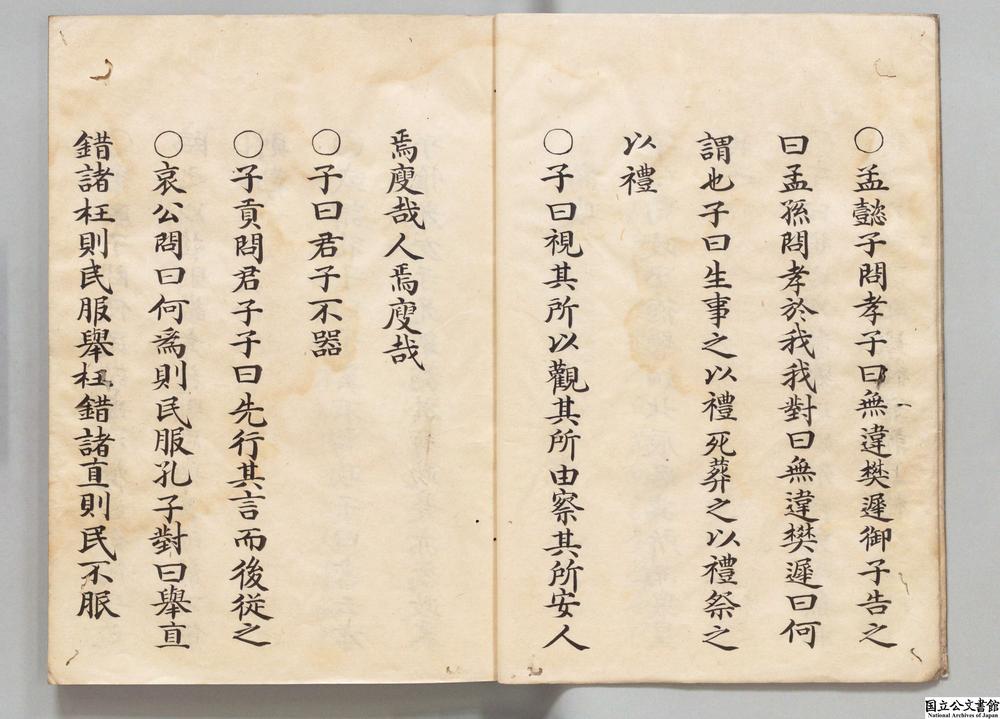 ○孟懿子問孝子曰無違樊遲御子告之
曰孟孫問孝於我我對曰無違樊遲曰何
謂也子曰生事之以禮死葬之以禮祭之
以禮
○子曰視其所以觀其所由察其所安人
焉廋哉人焉廋哉
○子曰君子不器
○子貢問君子子曰先行其言而後従之
○哀公問曰何為則民服孔子對曰舉直
錯諸枉則民服舉枉錯諸直則民不服
国立公文書館
National Archives of Japan